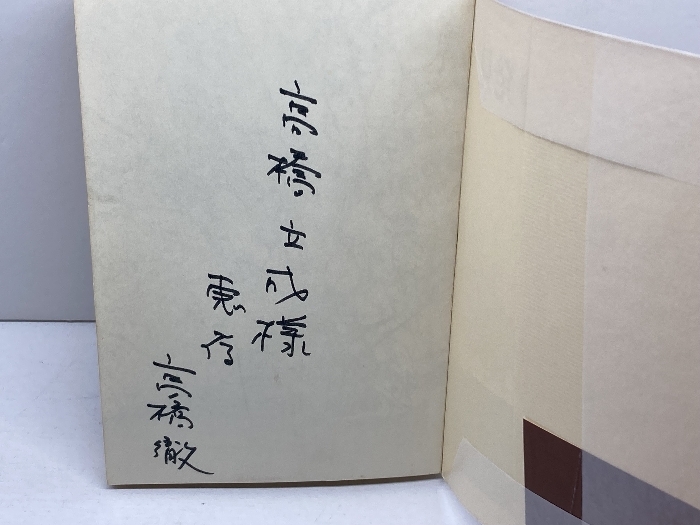 高橋立成様
恵存
高橋徹